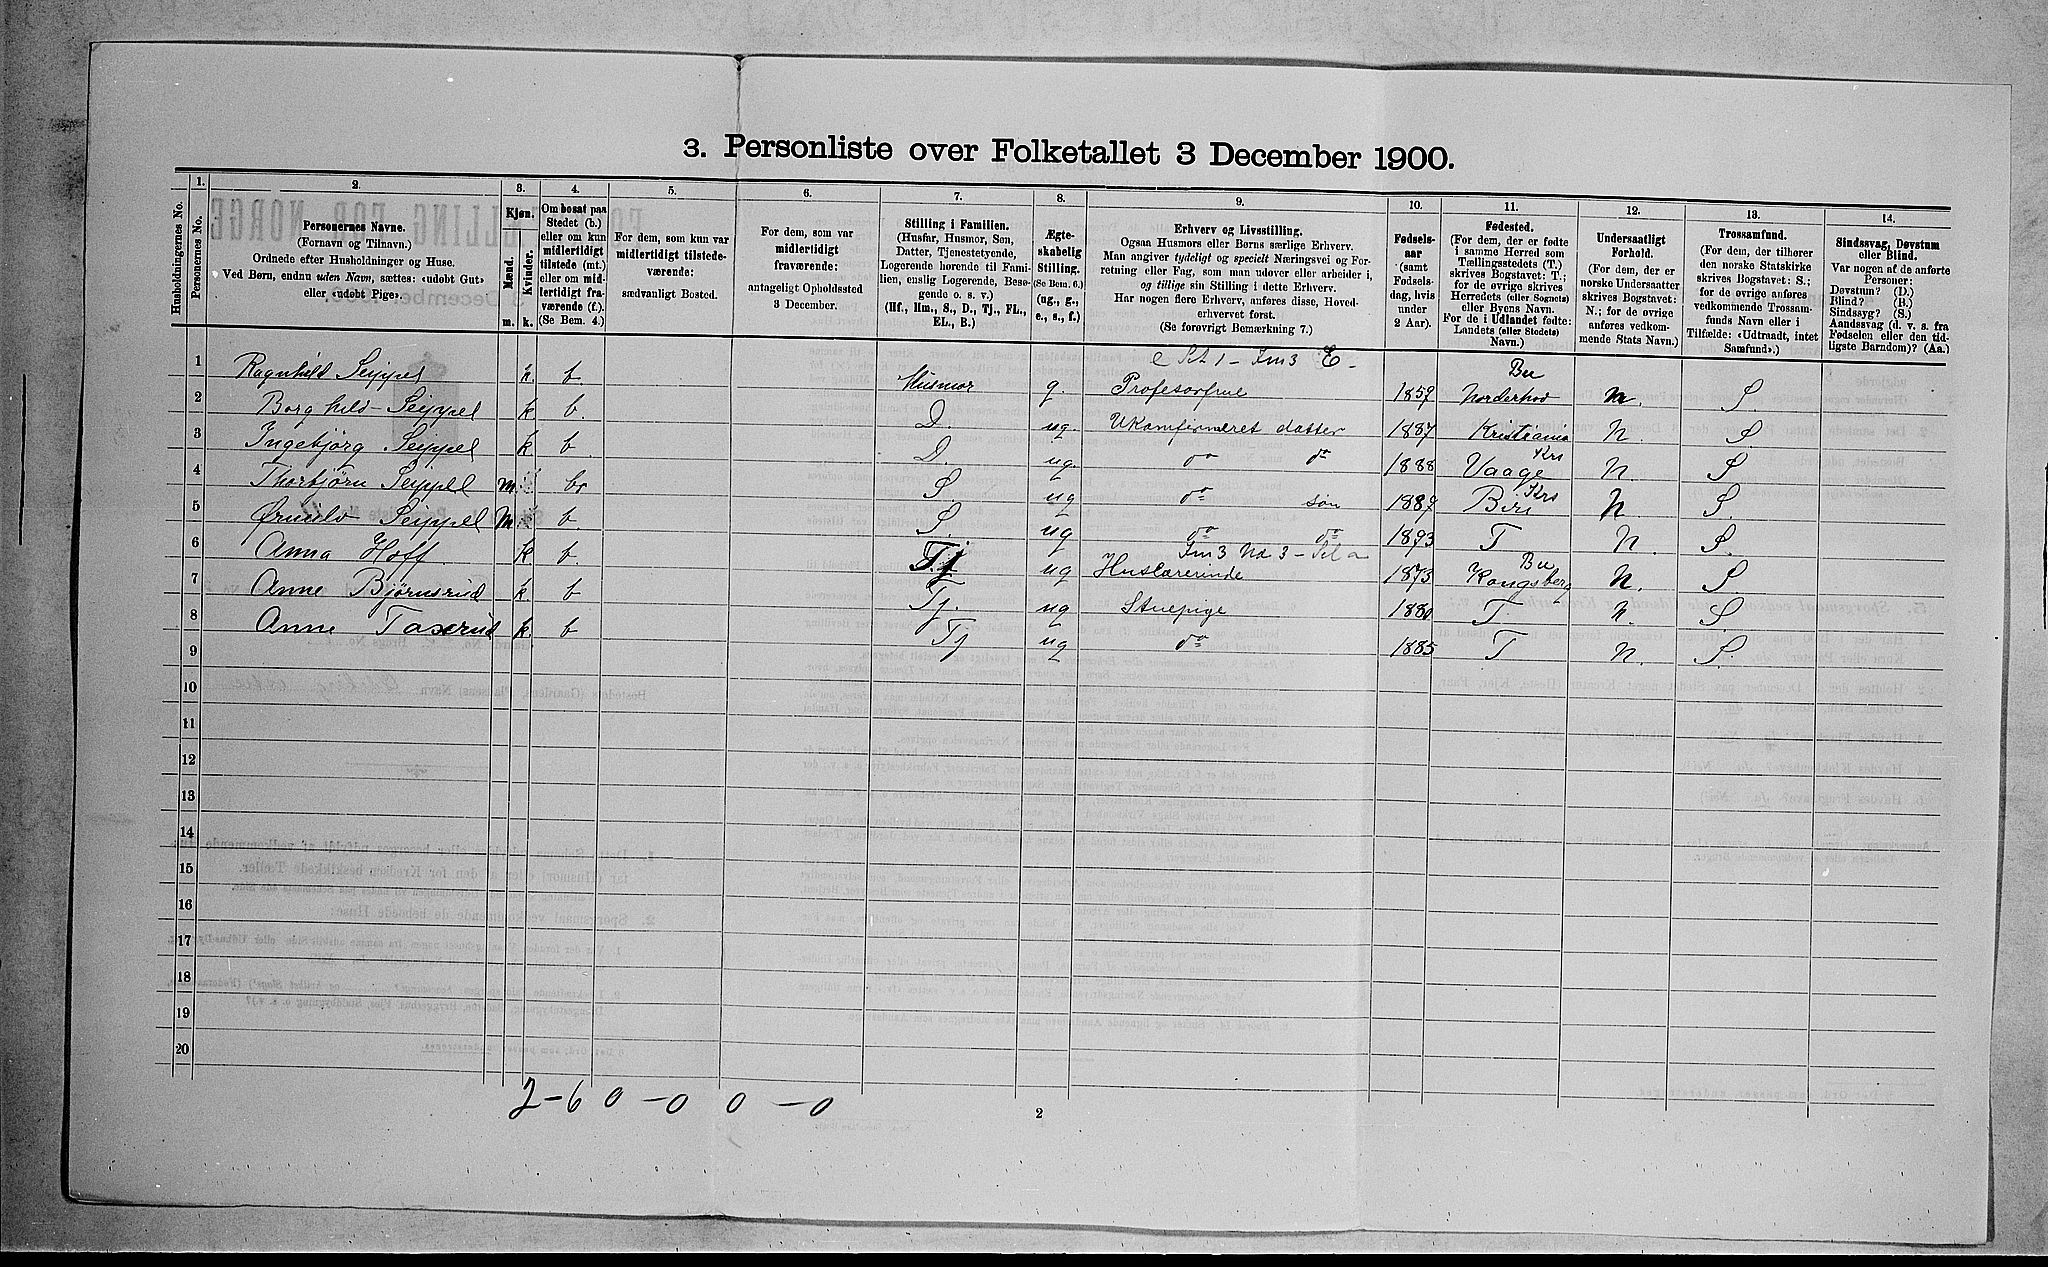 3. Personliste over Folketallet 3 December 1900.
Husholdningernes No.
1. Personernes No.
2. Personernes Navne.
(Fornavn og Tilnavn.)
Ordnede efter Husholdninger og Huse.
Ved Børn, endnu uden Navn, sættes: «udøbt Gut»
eller «udøbt Pige».
3. Kjøn.
Mænd. Kvinder.
m. k.
4. Om bosat paa
Stedet (b.)
eller om kun
midlertidigt
tilstede (mt.)
eller om mid-
lertidigt fra-
værende (f.).
(Se Bem. 4.)
5. For dem, som kun var
midlertidigt tilstede-
værende:
sædvanligt Bosted.
6. For dem, som var
midlertidigt
fraværende:
antageligt Opholdssted
3 December.
7. Stilling i Familien.
(Husfar, Husmor, Søn,
Datter, Tjenestetyende,
Logerende hørende til Fami-
lien, enslig Logerende, Besø-
gende o. s. v.)
(Hf., Hm., S., D., Tj., FL.,
EL., B.)
8. Ægte-
skabelig
Stilling.
(Se Bem. 6.)
(ug., g.,
e., s., f.)
9. Erhverv og Livsstilling.
Ogsaa Husmors eller Børns særlige Erhverv.
Man angiver tydeligt og specielt Næringsvei og For-
retning eller Fag, som man udøver eller arbeider i,
og tillige sin Stilling i dette Erhverv.
Har nogen flere Erhverv, anføres disse, Hoved-
erhvervet først.
(Se forøvrigt Bemærkning 7.)
10. Fødsels-
aar
(samt
Fødsels-
dag, hvis
under
2 Aar).
11. Fødested.
(For dem, der er fødte
i samme Herred som
Tællingsstedets (T.)
skrives Bogstavet: T.;
for de øvrige skrives
Herredets (eller Sognets)
eller Byens Navn.
For de i Udlandet fødte:
Landets (eller Stedets)
Navn.)
12. Undersaatligt
Forhold.
(For dem, der er
norske Undersaatter
skrives Bogstavet:
N.; for de øvrige
anføres vedkom-
mende Stats Navn.)
13. Trossamfund.
(For dem, der tilhører
den norske Statskirke
skrives Bogstavet: S.;
for de øvrige anføres
vedkommende Trossam-
funds Navn eller i
Tilfælde: «Udtraadt, intet
Samfund».)
14. Sindssvag, Døvstum
eller Blind.
Var nogen af de anførte
Personer:
Døvstum? (D.)
Blind? (B.)
Sindssyg? (S.)
Aandssvag (d. v. s. fra
Fødselen eller den tid-
ligste Barndom)? (Aa.)
1 Ragnhild Seippel k. b. Husmor g. Profesorfrue 1857 Bu Norderhov N. S.
2 Borghild Seippel k b. D. ug. Ukonfirmeret datter 1887 Kristiania N. S
3 Ingebjørg Seippel k b D. ug. do do 1888 Vaage Krs N. S
4 Thorbjørn Seippel m. b S. ug do søn 1887 Biri Krs N S.
5 Seippel m. b. S. ug do do 1893 T N. S.
6 Anna Hoff. k b. Tj ug Huslærerinde 1873 Bu Kongsberg N. S
7 Anne Bjørnsrud k. b Tj. ug Stuepige 1880 T N. S
8 Anne k. b Tj ug do 1885 T N. S.
9
10
11
12
13
14
15
16
17
18
19
20
2-6 0-0 0-0
2